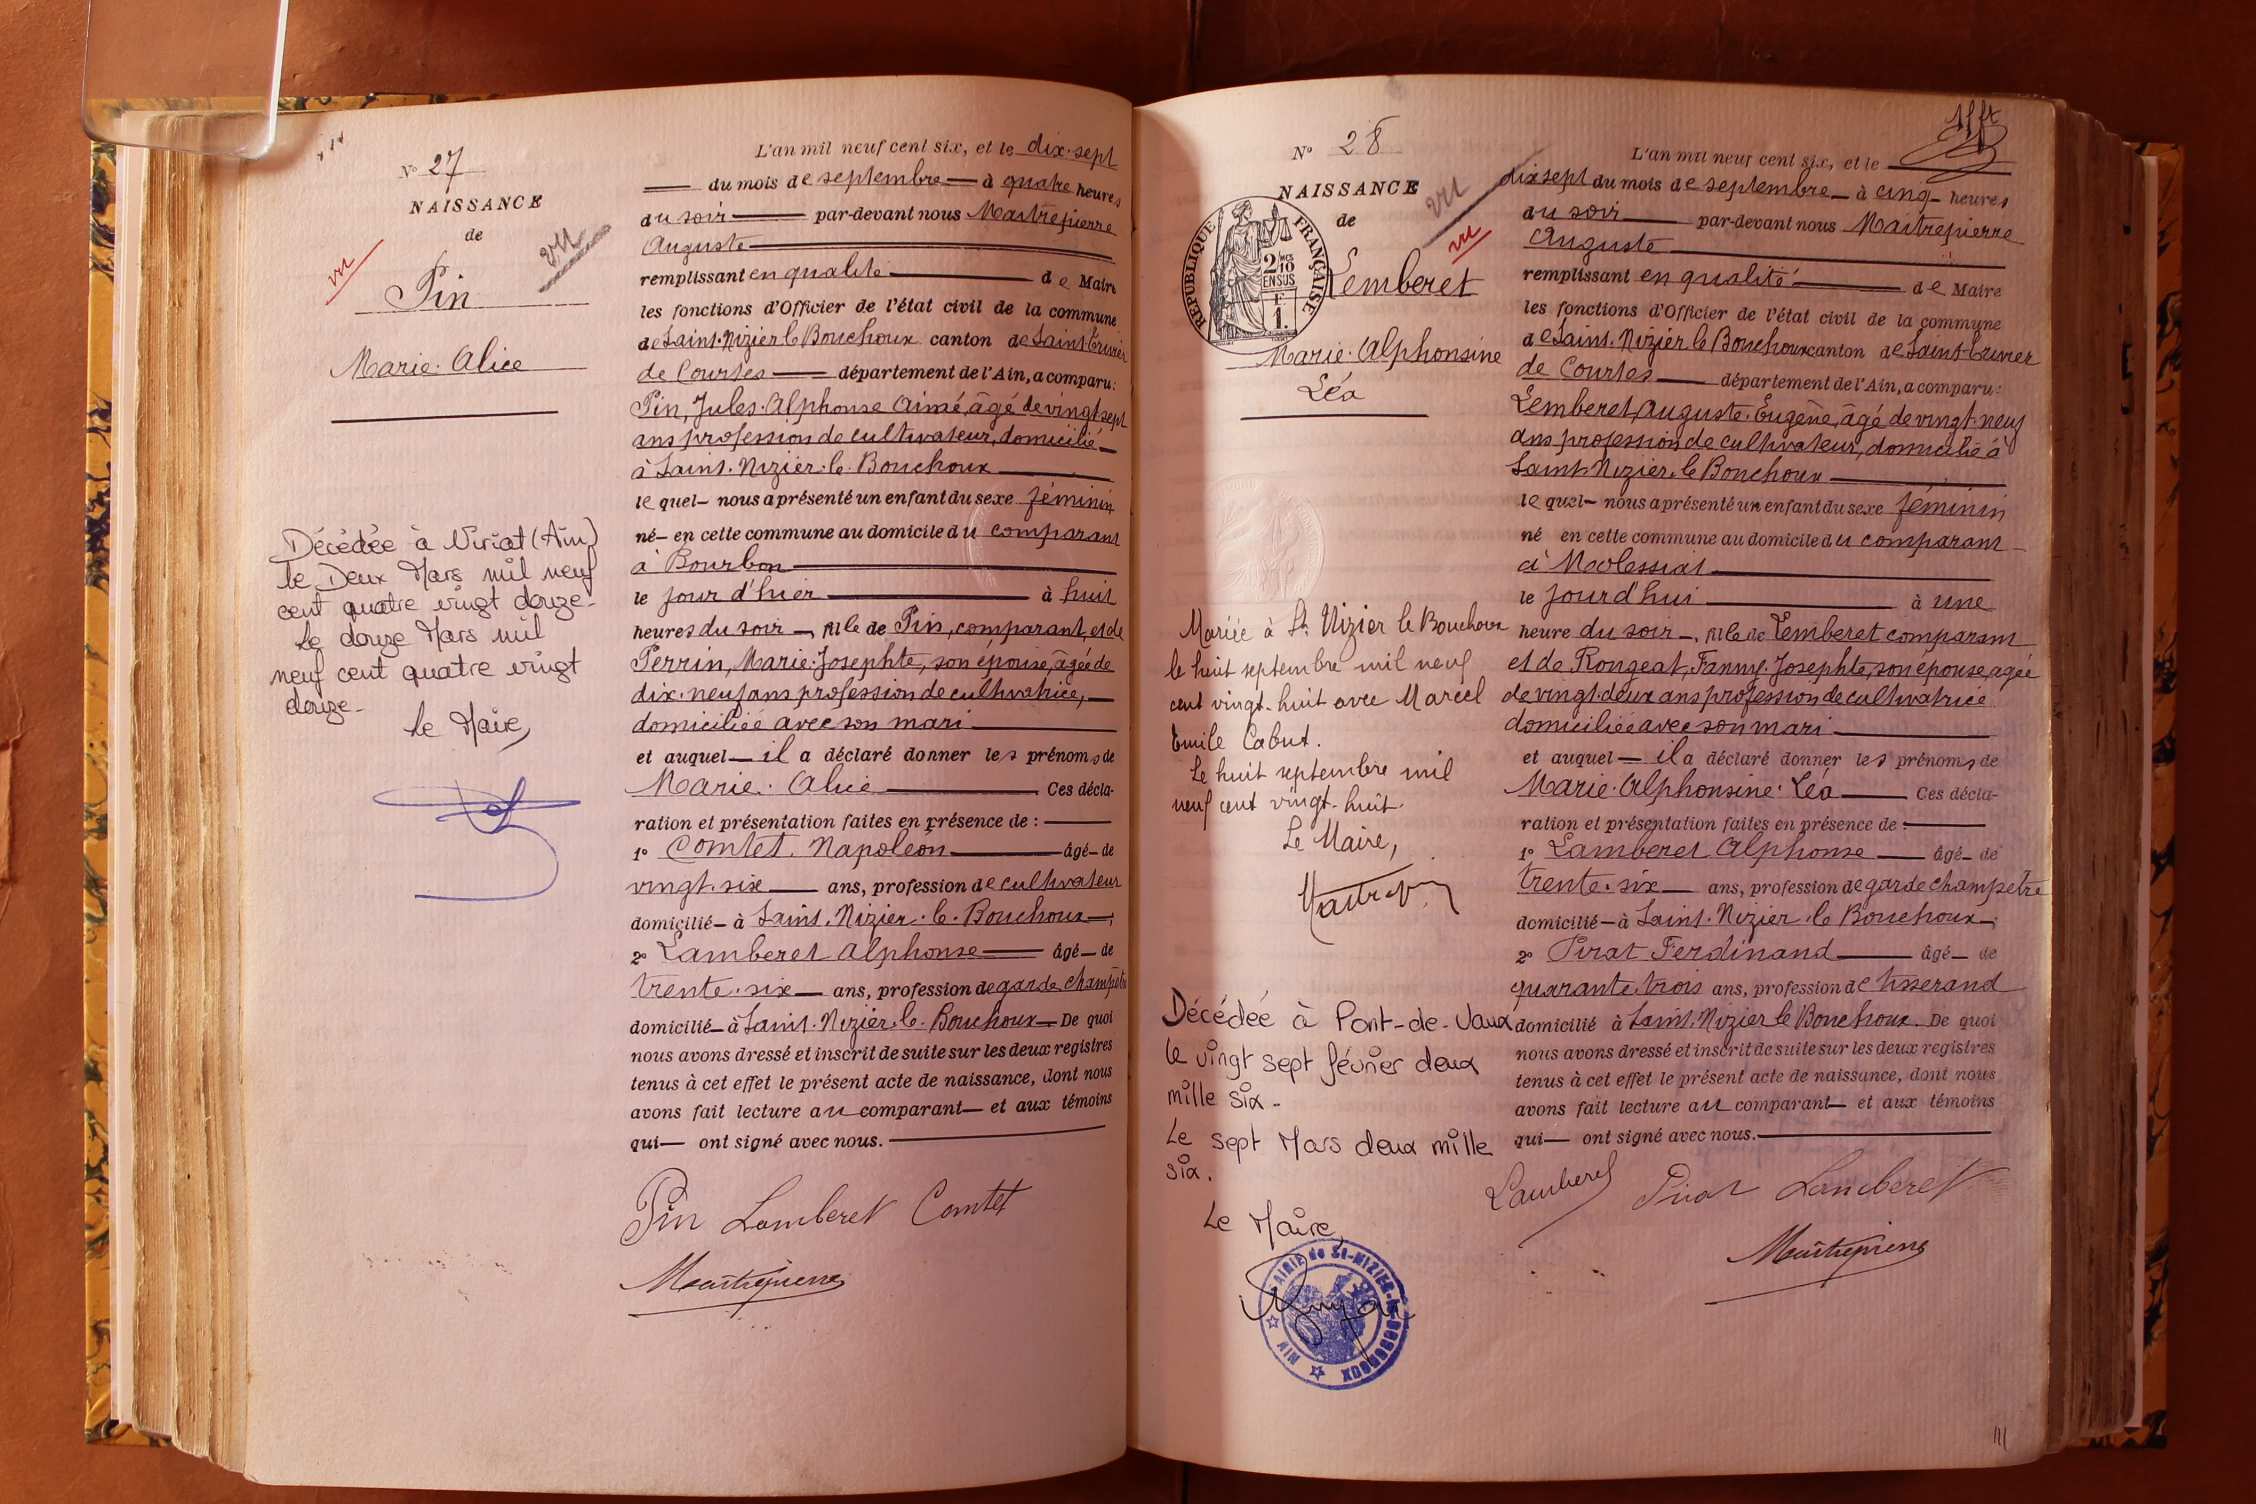 N° 27
NAISSANCE
de
vu
vu
Pin
Marie Alice
Décédée à Viriat (Ain)
le Deux Mars mil neuf
cent quatre vingt douze.
Le douze Mars mil
neuf cent quatre vingt
douze.
Le Maire,
L'an mil neuf cent six, et le dix-sept
du mois de septembre à quatre heures
du soir par-devant nous Maitrepierre
Auguste
remplissant en qualité de Maire
les fonctions d'Officier de l'état civil de la commune
de Saint-Nizier le Bouchoux canton de Saint-Trivier
de Courtes département de l'Ain, a comparu :
Pin, Jules Alphonse Aimé, âgé de vingt-sept
ans profession de cultivateur, domicilié
à Saint-Nizier-le-Bouchoux
lequel nous a présenté un enfant du sexe féminin
né en cette commune au domicile du comparant
à Bourbon
le jour d'hier à huit
heures du soir, fille de Pin, comparant, et de
Perrin, Marie-Josephte, son épouse, âgée de
dix-neuf ans profession de cultivatrice,
domiciliée avec son mari
et auquel il a déclaré donner les prénoms de
Marie Alice Ces décla-
ration et présentation faites en présence de :
1° Comtet Napoléon âgé de
vingt-six ans, profession de cultivateur
domicilié à Saint-Nizier-le-Bouchoux ;
2° Lamberet Alphonse âgé de
trente-six ans, profession de garde champêtre
domicilié à Saint-Nizier-le-Bouchoux De quoi
nous avons dressé et inscrit de suite sur les deux registres
tenus à cet effet le présent acte de naissance, dont nous
avons fait lecture au comparant et aux témoins
qui ont signé avec nous.
Pin Lamberet Comtet
Maitrepierre
N° 28
NAISSANCE
de
vu
vu
RÉPUBLIQUE FRANÇAISE
2/10 EN SUS
F 1.
Lemberet
Marie-Alphonsine
Léa
Mariée à St Nizier le Bouchoux
le huit septembre mil neuf
cent vingt-huit avec Marcel
Emile Cabut.
Le huit septembre mil
neuf cent vingt-huit.
Le Maire,
Décédée à Pont-de-Vaux
le vingt sept février deux
mille six.
Le sept Mars deux mille
six.
Le Maire,
MAIRIE de St-NIZIER-le-BOUCHOUX
AIN
L'an mil neuf cent six, et le
dix sept du mois de septembre à cinq heures
du soir par-devant nous Maitrepierre
Auguste
remplissant en qualité de Maire
les fonctions d'Officier de l'état civil de la commune
de Saint-Nizier le Bouchoux canton de Saint-Trivier
de Courtes département de l'Ain, a comparu :
Lemberet, Auguste-Eugène, âgé de vingt-neuf
ans profession de cultivateur, domicilié à
Saint-Nizier-le Bouchoux
lequel nous a présenté un enfant du sexe féminin
né en cette commune au domicile du comparant
à Molessiat
le jour d'hui à une
heure du soir, fille de Lemberet comparant
et de Rongeat, Fanny-Josephte, son épouse, agée
de vingt-deux ans profession de cultivatrice
domiciliée avec son mari
et auquel il a déclaré donner les prénoms de
Marie-Alphonsine-Léa Ces décla-
ration et présentation faites en présence de :
1° Lamberet Alphonse âgé de
trente-six ans, profession de garde champetre
domicilié à Saint-Nizier-le Bouchoux ;
2° Pirat Ferdinand âgé de
quarante-trois ans, profession de tisserand
domicilié à Saint-Nizier le Bouchoux. De quoi
nous avons dressé et inscrit de suite sur les deux registres
tenus à cet effet le présent acte de naissance, dont nous
avons fait lecture au comparant et aux témoins
qui ont signé avec nous.
Lamberet Pirat Lamberet
Maitrepierre